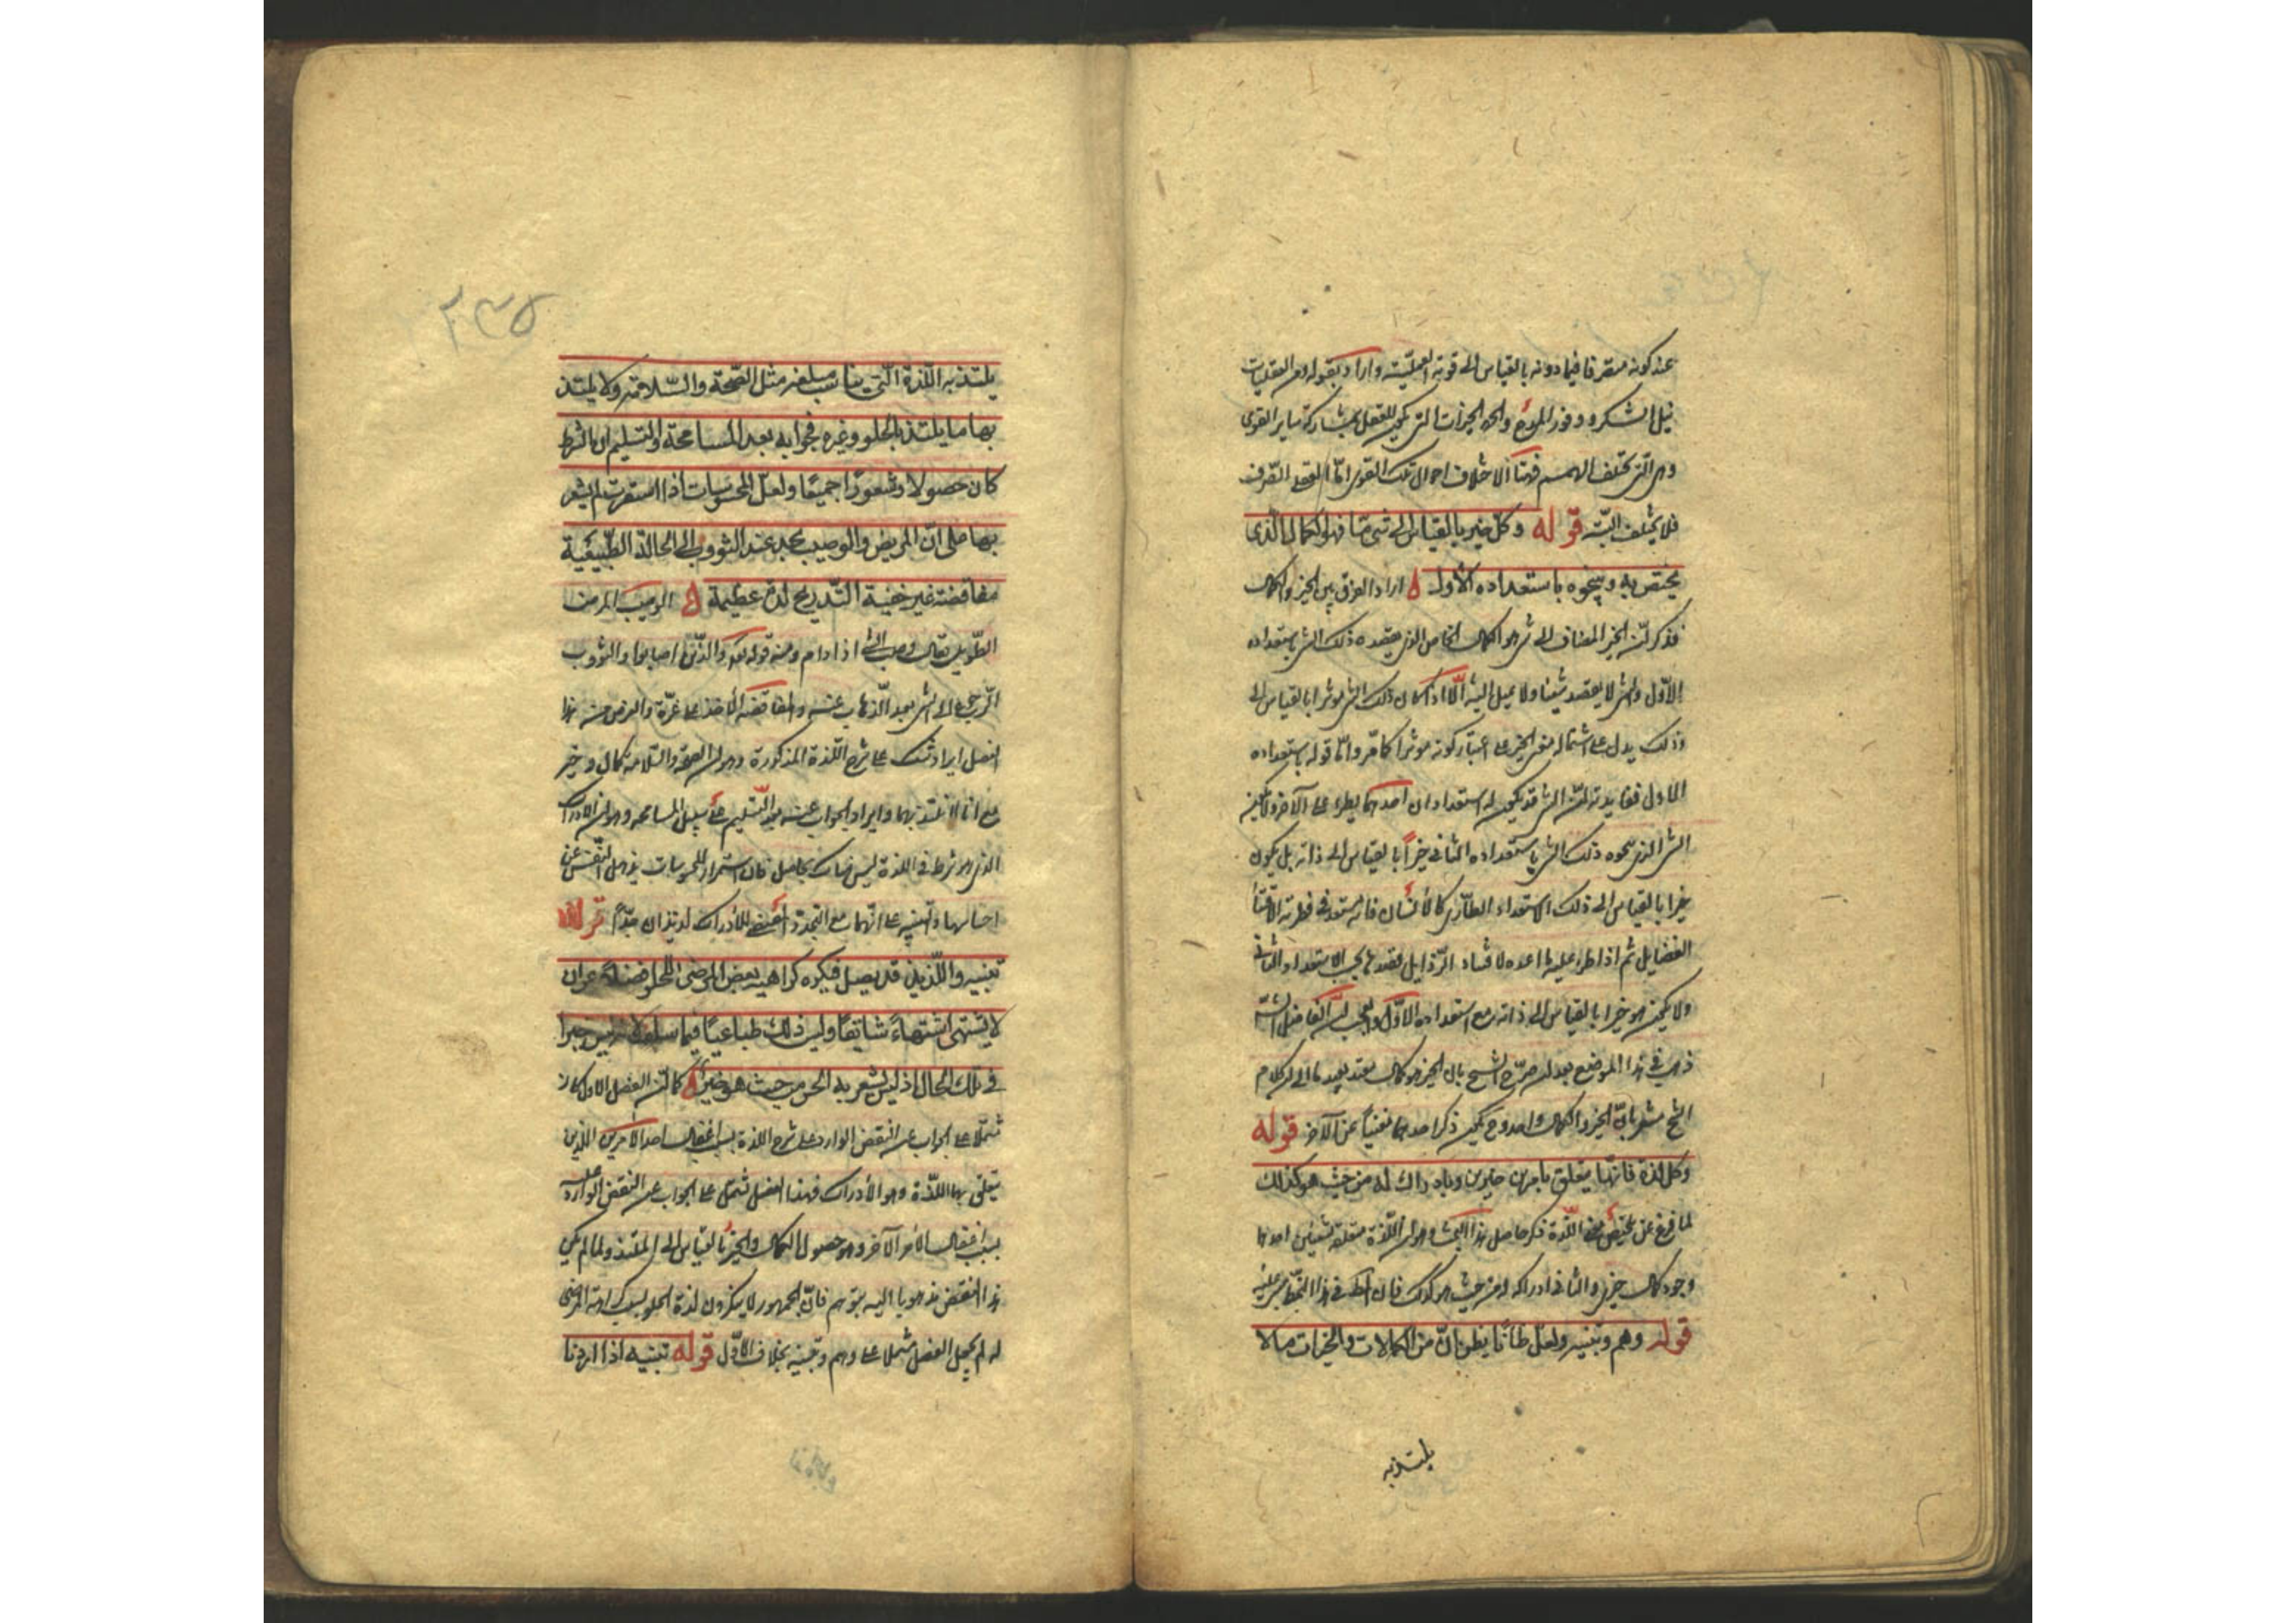 عند كونه منصرفا فيما دونه بالقياس الى قوته العملية واراد بقوله ومن العقليات
نيل الشكر ووفور المدح والحمد الخيرات التى يكون للعقل بمشاركة ساير القوى
وهى التى تختلف الهمم فيها لاختلاف احوال تلك القوى اما العقلى الصرف
فلا يختلف البتة قوله وكل خير بالقياس الى شئ ما فهو الكمال الذى
يختص به وينحوه باستعداده الاول اراد الفرق بين الخير والكمال
فذكر ان الخير المضاف الى شئ هو الكمال الخاص الذى يقصده ذلك الشئ باستعداده
الاول والشئ لا يقصد شيئا ولا يميل اليه الا اذا كان ذلك الشئ موثرا بالقياس اليه
وذلك يدل على اشتمال معنى الخير على اعتبار كونه موثرا كما مر واما قوله باستعداده
الاول ففايدته ان الشئ قد يكون له استعدادان احدهما يطرء على الآخر ولا يكون
الشئ الذى ينحوه ذلك الشئ باستعداده الثانى خيرا بالقياس الى ذاته بل يكون
خيرا بالقياس الى ذلك الاستعداد الطارى كالانسان فانه مستعد فى فطرته لاقتناء
الفضايل ثم اذا طرء عليه ما اعده لاقتناء الرذايل قصدها بحسب الاستعداد الثانى
ولا يكون هو خيرا بالقياس الى ذاته مع استعداده الاول والعجب ان الفاضل الشارح
ذهب فى هذا الموضع بعد ان صرح الشيخ بان الخير هو كمال مقيد بقيد ما الى ان كلام
الشيخ مشعر بان الخير والكمال واحد وح يكون ذكر احدهما مغنيا عن الآخر قوله
وكل لذة فانها يتعلق بامرين خيرين وبادراك له من حيث هو كذلك
لما فرغ عن تلخيص معنى اللذة ذكر حاصل هذا البحث وهو ان اللذة متعلقة بشيئين احدهما
وجود كمال خيرى والثانى ادراكه له من حيث هو كذلك فان اكثر فى هذا النمط مبنى عليه
قوله وهم وتنبيه ولعل ظانا يظن ان من الكمالات والخيرات ما لا
يلتذ به
٢٣٥
يلتذ به اللذة التى يناسب مبلغه مثل الصحة والسلامة ولا يلتذ
بها ما يلتذ بالحلو وغيره فجوابه بعد المسامحة والتسليم ان الشرط
كان حصولا وشعورا جميعا ولعل المحسوسات اذا استقرت لم يشعر
بها على ان المريض والوصيب يجد عند الثووب الى الحالة الطبيعية
مغافضة غير خفية التدريج لذة عظيمة الوصيب المريض
الطويل يقال وصب الشئ اذا دام ومنه قوله تعالى والذين اصابوا والثووب
الرجوع الى الشئ بعد الذهاب عنه والمغافضة الاخذ على غرة والغرض من هذا
الفصل ايراد شك على شرح اللذة المذكورة وهو ان الصحة والسلامة كمال وخير
مع انا لا نلتذ بهما وايراد الجواب عنه بعد التسليم على سبيل المسامحة وهو ان الادراك
الذى هو شرط فى اللذة ليس هناك بحاصل فان استمرار المحسوسات يذهل النفس عن
احساسها والتنبيه على انهما مع التجدد المقتضى للادراك لذيذان جدا قوله
تنبيه واللذيذ قد يصل فيكره كراهية بعض المرضى للحلو فضلا عن ان
لا يشتهى اشتهاء شايقا وليس ذلك طاعنا فيما سلف لانه ليس خيرا
فى تلك الحال اذ ليس يشعر به الحس من حيث هو خير كما ان الفصل الاول كان
مشتملا على الجواب عن النقض الوارد على شرح اللذة بسبب اغفال احد الامرين اللذين
يتعلق بهما اللذة وهو الادراك فهذا الفصل مشتمل على الجواب عن النقض الوارد عليه
بسبب اغفال الامر الآخر وهو حصول الكمال والخير بالقياس الى الملتذ ولما لم يكن
هذا النقض مذهوبا اليه بتوهم فان الجمهور لا ينكرون لذة الحلو بسبب كراهة المرضى
له لم يجعل الفصل مشتملا على وهم وتنبيه بخلاف الاول قوله تنبيه اذا اردنا